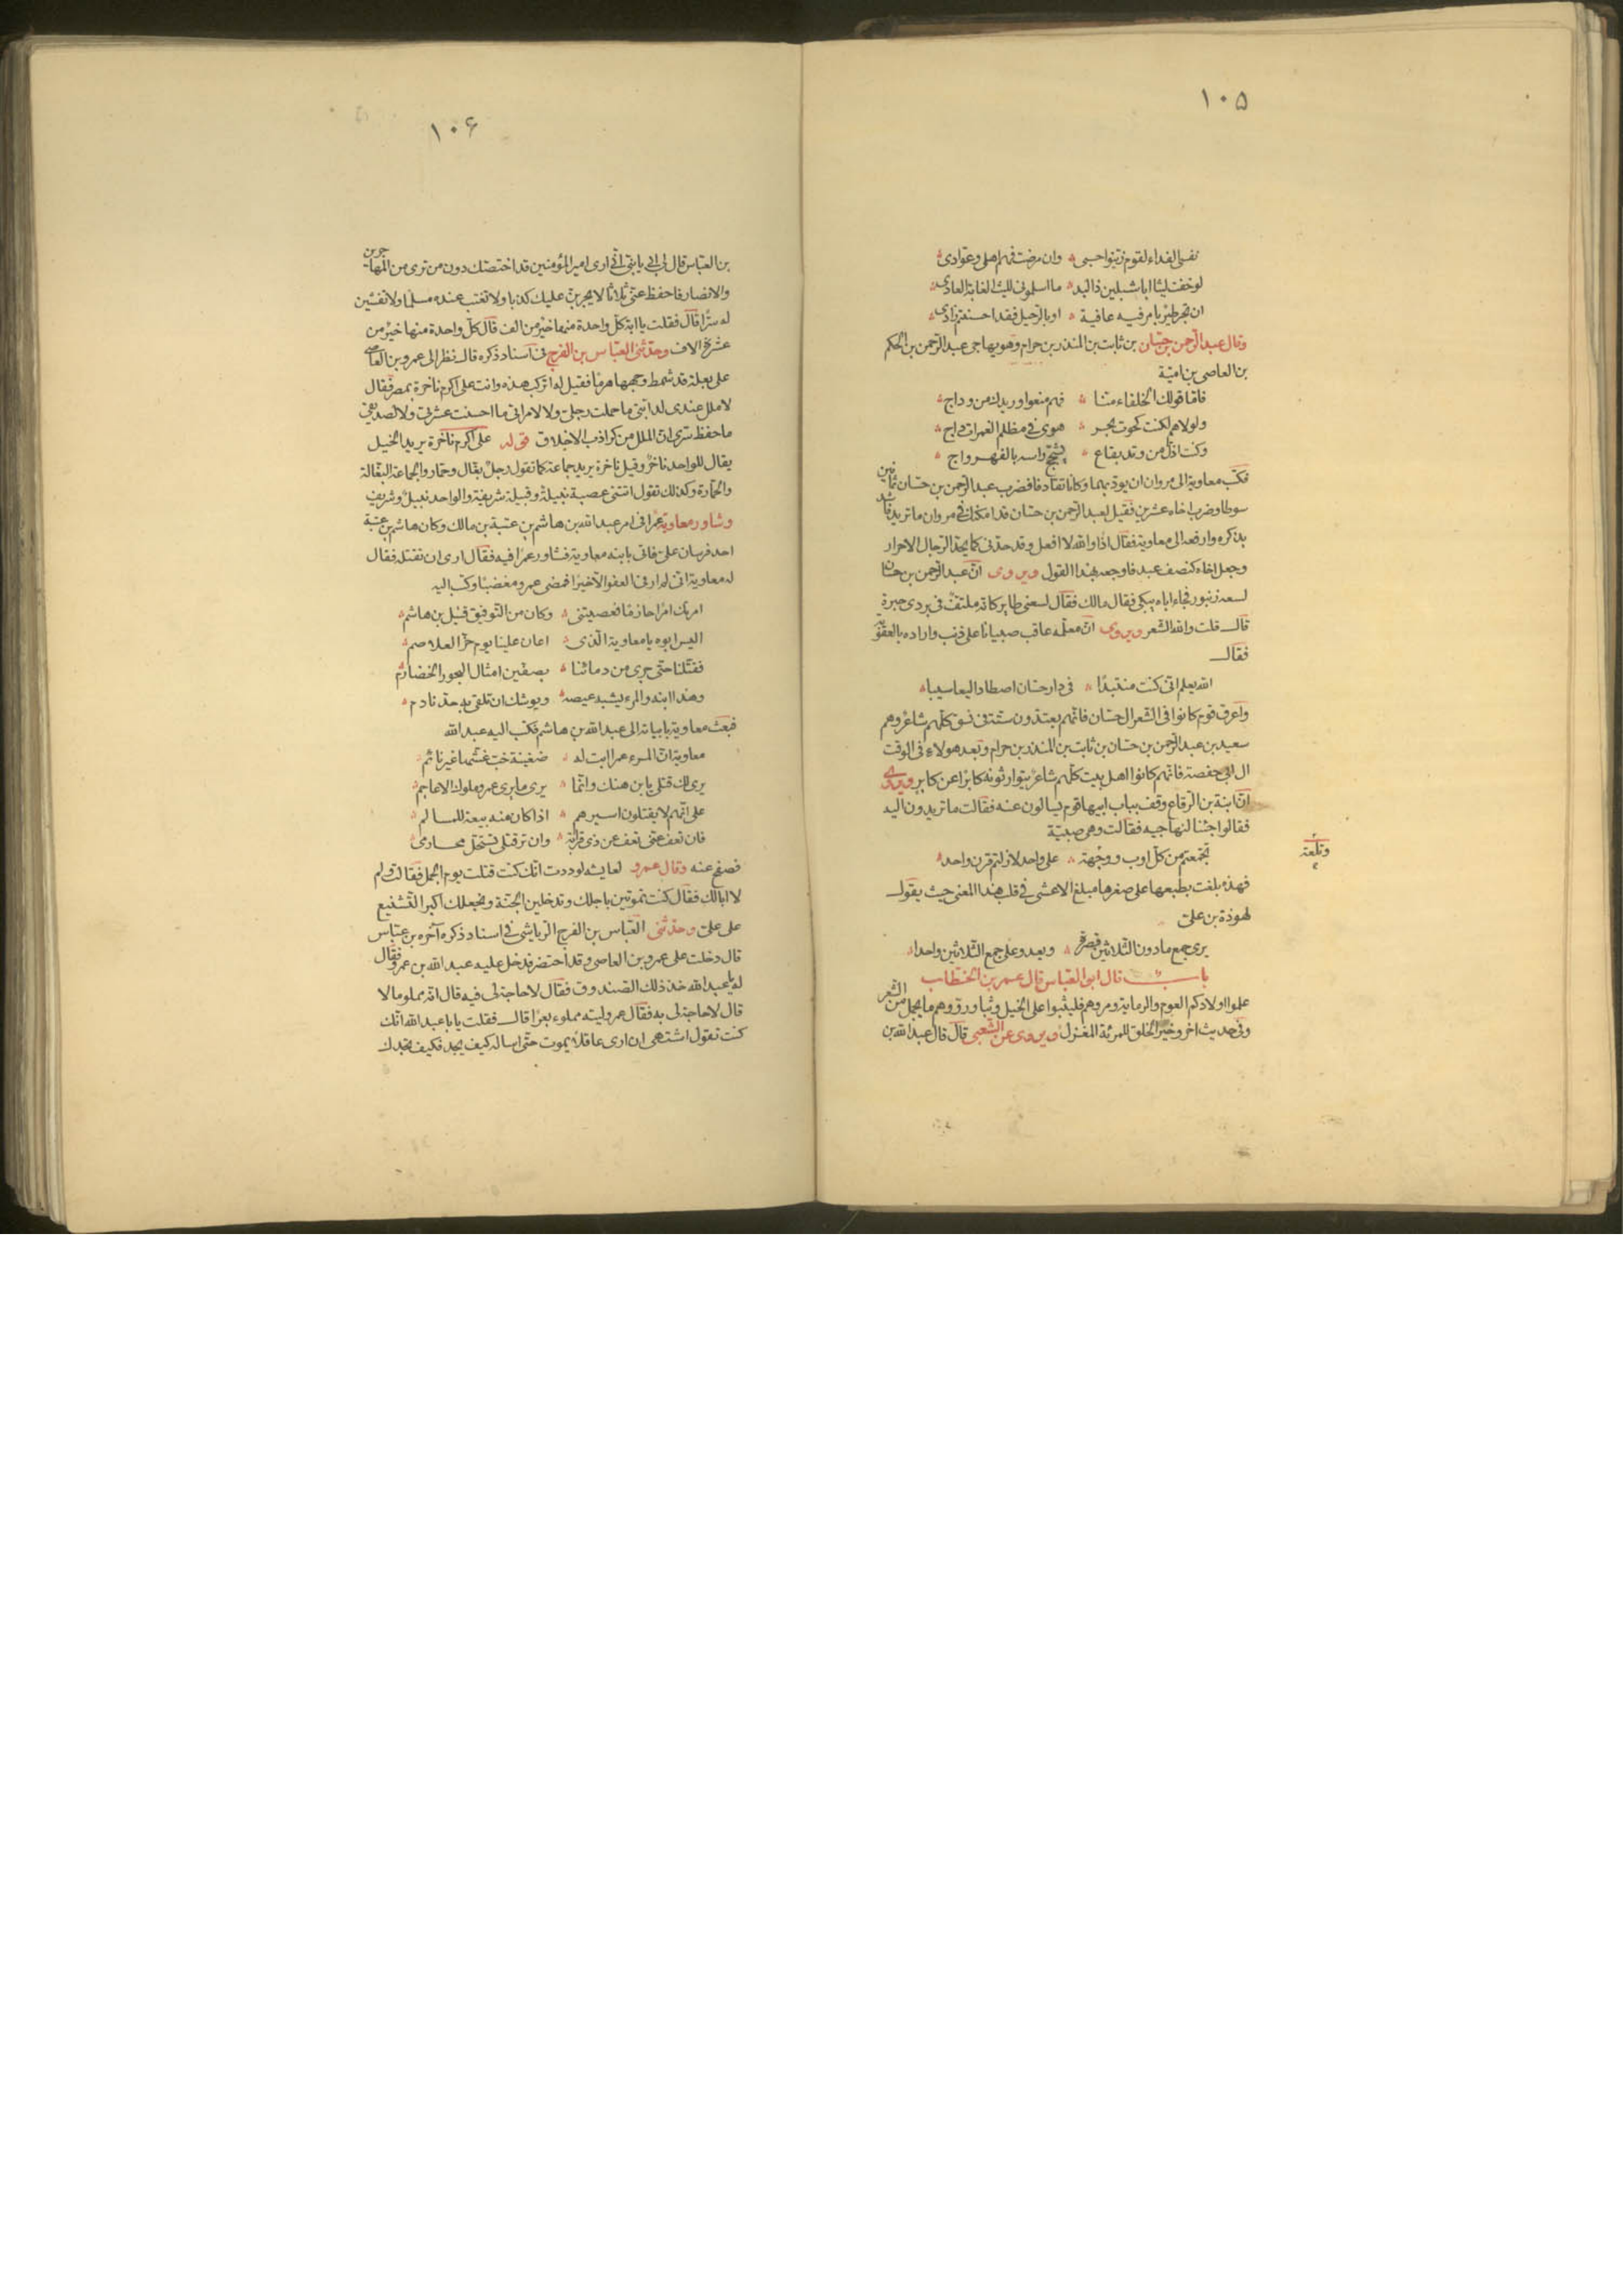 ١٠٥
نفسى الفداء لقوم زينوا حسبى وان مرضت فهم اهلى وعوادى
لو خفت ليثا ابا شبلين ذا لبد ما اسلمونى لليث الغابة العادى
ان تجر طير بامر فيه عافية او بالرحيل فقد احسنتم زادى
وقال عبد الرحمن بن حسان بن ثابت بن المنذر بن حرام وهو يهاجى عبد الرحمن بن الحكم
بن العاصى بن امية
فاما قولك الخلفاء منا فهم منعوا وريدك من وداج
ولولاهم لكنت كحوت بحر هوى فى مظلم الغمرات داج
وكنت اذل من وتد بقاع يشجج راسه بالفهر واج
فكتب معاوية الى مروان ان يؤدبهما وكانا تقاذفا فضرب عبد الرحمن بن حسان ثمانين
سوطا وضرب اخاه عشرين فقيل لعبد الرحمن بن حسان قد امكنك فى مروان ما تريد فاشد
بذكره وارفعه الى معاوية فقال اذا والله لا افعل وقد حدنى كما يحد الرجال الاحرار
وجعل اخاه كنصف عبد فاوجعه بهذا القول ويروى ان عبد الرحمن بن حسان
لسعه زنبور فجاء اباه يبكى فقال مالك فقال لسعنى طاير كانه ملتف فى بردى حبرة
قال قلت والله الشعر ويروى ان معلمه عاقب صبيانا على ذنب واراده بالعقوبة
فقال
الله يعلم انى كنت منتبذا فى دار حسان اصطاد اليعاسيبا
واعرق قوم كانوا فى الشعر ال حسان فانهم يعتدون ستة فى نسق كلهم شاعر وهم
سعيد بن عبد الرحمن بن حسان بن ثابت بن المنذر بن حرام وبعد هولاء فى الوقت
ال ابى حفصة فانهم كانوا اهل بيت كلهم شاعر يتوارثونه كابرا عن كابر ويروى
ان ابنة بن الرقاع وقف بباب ابيها قوم يسالون عنه فقالت ما تريدون اليه
فقالوا جئنا لنهاجيه فقالت وهى صبية
تجمعتم من كل اوب ووجهة على واحد لازلتم قرن واحد
وتلعة
فهذه بلغت بطبعها على صغرها مبلغ الاعشى فى قلب هذا المعنى حيث يقول
لهوذة بن على
يرى جمع ما دون الثلاثين قصرة ويعدو على جمع الثلاثين واحدا
باب قال ابو العباس قال عمر بن الخطاب
علموا اولادكم العوم والرماية ومروهم فليثبوا على الخيل وثبا ورووهم ما يجمل من الشعر
وفى حديث اخر وخير الخلق للمرئة المغزل ويروى عن الشعبى قال قال عبد الله بن
١٠۶
بن العباس قال لى ابى يا بنى انى ارى امير المؤمنين قد اختصك دون من ترى من المهاجرين
والانصار فاحفظ عنى ثلاثا لا يجربن عليك كذبا ولا تغتب عنده مسلما ولا تفشين
له سرا قال فقلت يا ابة كل واحدة منها خير من الف قال كل واحدة منها خير من
عشرة الاف وحدثنى العباس بن الفرج فى اسناد ذكره قال نظر الى عمرو بن العاصى
على بغلة قد شمط وجهها هرما فقيل له اتركب هذه وانت على اكرم ناخرة بمصر فقال
لا ملل عندى لدابتى ما حملت رجلى ولا لامراتى ما احسنت عشرتى ولا لصديقى
ما حفظ سرى ان الملل من كواذب الاخلاق قوله على اكرم ناخرة يريد الخيل
يقال للواحد ناخر وقيل ناخرة يريد جماعة كما تقول رجل بغال وحمار والجماعة البغالة
والحمارة وكذلك تقول اتتنى عصبة نبيلة وقبيلة شريفة والواحد نبيل وشريف
وشاور معاوية عمرا فى امر عبد الله بن هاشم بن عتبة بن مالك وكان هاشم بن عتبة
احد فرسان على فاتى بابنه معاوية فشاور عمرا فيه فقال ارى ان تقتله فقال
له معاوية انى لم ار فى العفو الا خيرا فمضى عمرو مغضبا وكتب اليه
امرتك امرا حازما فعصيتنى وكان من التوفيق قتل بن هاشم
اليس ابوه يا معاوية الذى اعان علينا يوم حز الغلاصم
فقتلنا حتى جرى من دمائنا بصفين امثال البحور الخضارم
وهذا ابنه والمرء يشبه عيصه ويوشك ان تلقى به جد نادم
فبعث معاوية بابياته الى عبد الله بن هاشم فكتب اليه عبد الله
معاوى ان المرء عمرا ابت له ضغينة خب غشها غير نائم
يرى لك قتلى يا بن هند وانما يرى ما يرى عمرو ملوك الاعاجم
على انهم لا يقتلون اسيرهم اذا كان منه بيعة للمسالم
فان تعف عنى تعف عن ذى قرابة وان تر قتلى تستحل محارمى
فصفح عنه وقال عمرو لعايشة لوددت انك كنت قتلت يوم الجمل فقالت ولم
لا ابالك فقال كنت تموتين باجلك وتدخلين الجنة ونجعلك اكبر التشنيع
على على وحدثنى العباس بن الفرج الرياشى فى اسناد ذكره آخره بن عباس
قال دخلت على عمرو بن العاصى وقد احتضر فدخل عليه عبد الله بن عمرو فقال
له يا عبد الله خذ ذلك الصندوق فقال لا حاجة لى فيه قال انه مملو مالا
قال لا حاجة لى به فقال عمرو ليته مملوء بعرا قال فقلت يابا عبد الله انك
كنت تقول اشتهى ان ارى عاقلا يموت حتى اساله كيف يجد فكيف تجدك